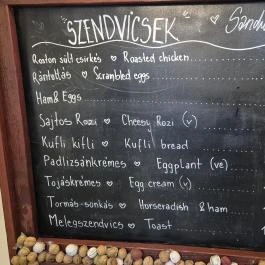 "SZENDVICSEK
Roston sült csirkés ♡ Roasted chicken
Rántottás ♡ Scrambled eggs
Ham & Eggs
Sajtos Rozi ♡ Cheesy Rozi (v)
Kufli kifli ♡ Kufli bread
Padlizsánkrémes ♡ Eggplant (ve)
Tojáskrémes ♡ Egg cream (v)
Tormás-sonkás ♡ Horseradish & ham
Melegszendvics ♡ Toast